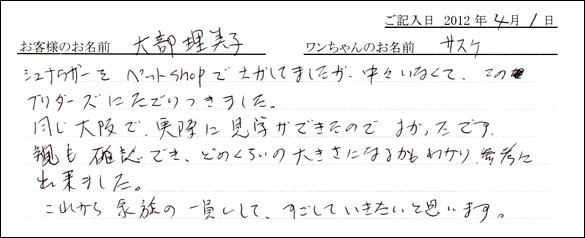 ご記入日 2012年4月1日
お客様のお名前 大部理美子 ワンちゃんのお名前 サスケ
シュナウザーをペットshopでさがしてましたが、中々いなくて、この
ブリダーズにたどりつきました。
同じ大阪で、実際に見学ができたのでよかったです。
親も確認でき、どのくらいの大きさになるかもわかり、参考に
出来ました。
これから家族の一員として、すごしていきたいと思います。